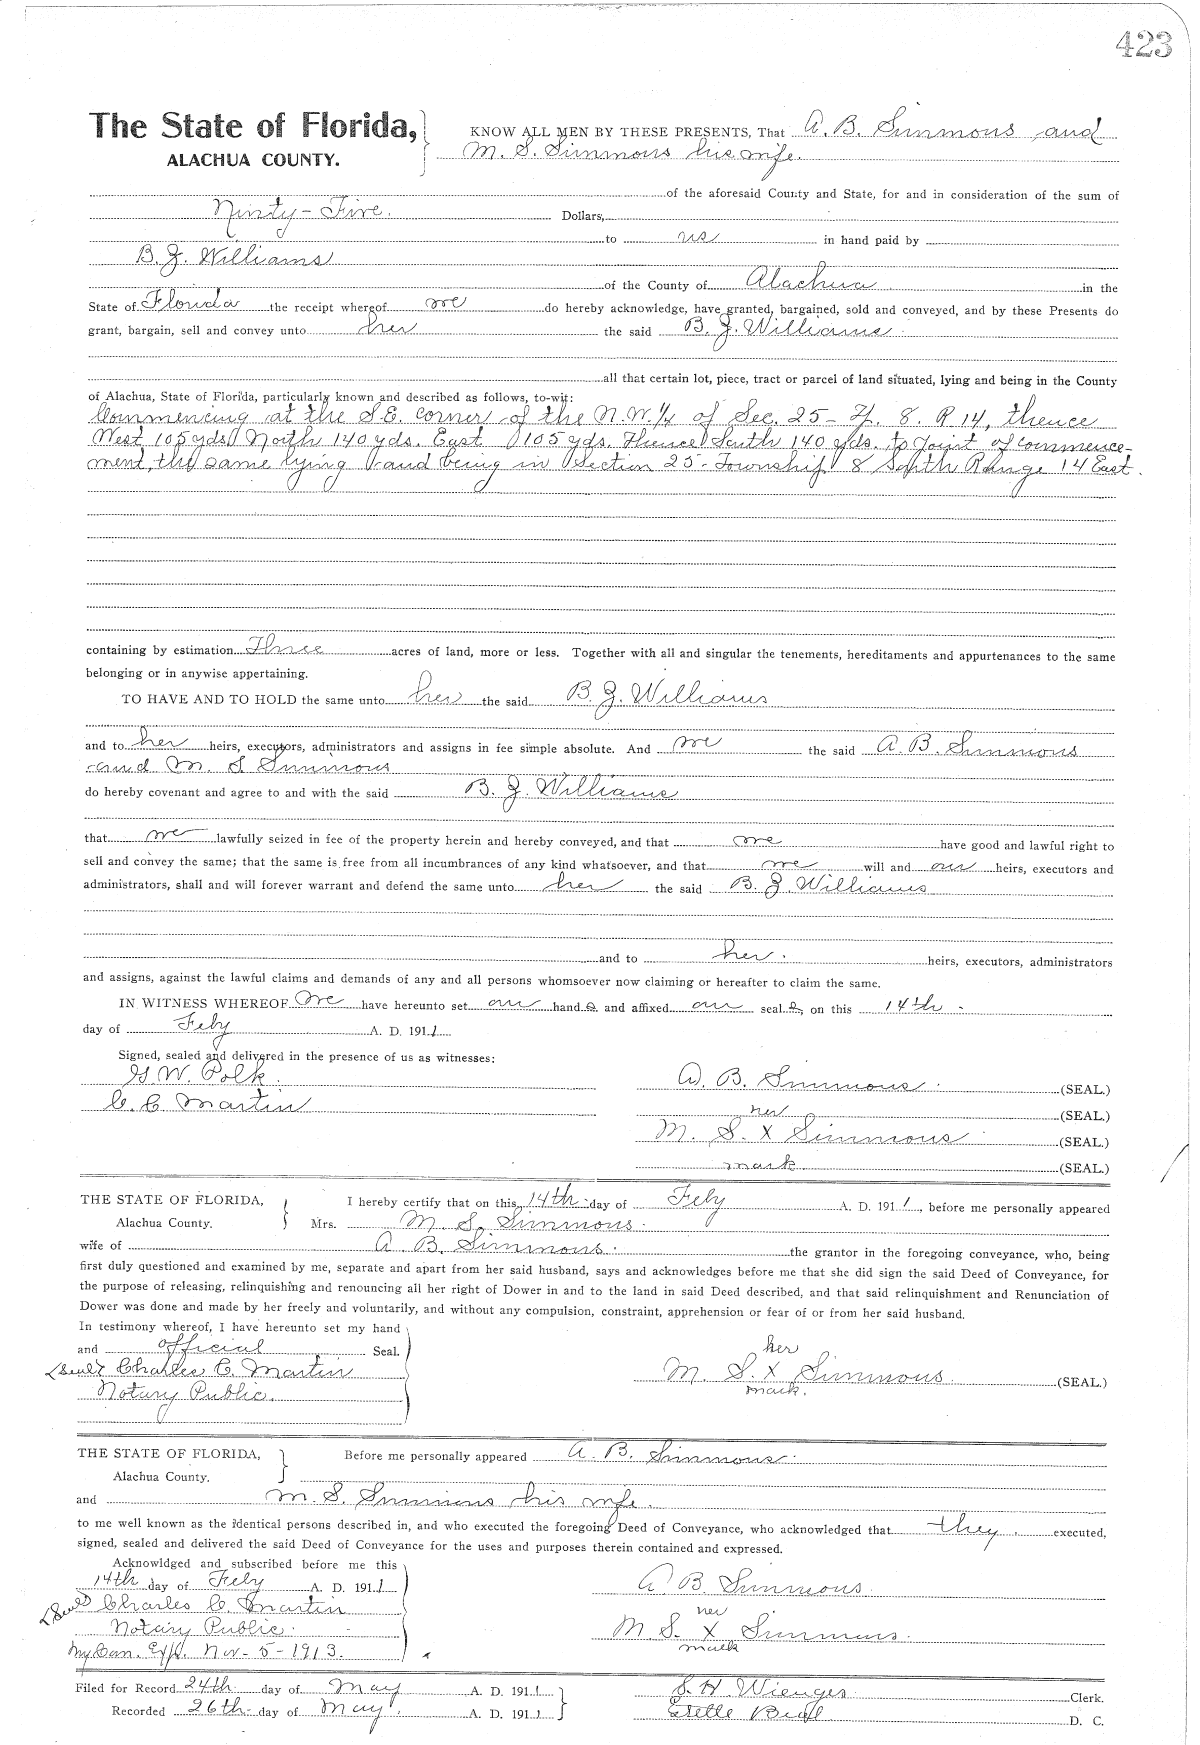 423
The State of Florida, KNOW ALL MEN BY THESE PRESENTS, That A. B. Simmons and
ALACHUA COUNTY. M. S. Simmons his wife.
of the aforesaid County and State, for and in consideration of the sum of
Ninty-Five. Dollars,
to us in hand paid by
B. J. Williams
of the County of Alachua in the
State of Florida the receipt whereof we do hereby acknowledge, have granted, bargained, sold and conveyed, and by these Presents do
grant, bargain, sell and convey unto her the said B. J. Williams
all that certain lot, piece, tract or parcel of land situated, lying and being in the County
of Alachua, State of Florida, particularly known and described as follows, to-wit:
Commencing at the S.E. corner of the N.W.1/4 of Sec. 25 - 8. R 14, thence
West 105 yds. North 140 yds. East 105 yds. Thence South 140 yds. to point of commence-
ment, the same lying and being in Section 25 - Township 8 South Range 14 East.
containing by estimation Three acres of land, more or less. Together with all and singular the tenements, hereditaments and appurtenances to the same
belonging or in anywise appertaining.
TO HAVE AND TO HOLD the same unto her the said B. J. Williams
and to her heirs, executors, administrators and assigns in fee simple absolute. And we the said A. B. Simmons
and M. S Simmons
do hereby covenant and agree to and with the said B. J. Williams
that we lawfully seized in fee of the property herein and hereby conveyed, and that we have good and lawful right to
sell and convey the same; that the same is free from all incumbrances of any kind whatsoever, and that we will and our heirs, executors and
administrators, shall and will forever warrant and defend the same unto her the said B. J Williams
and to her. heirs, executors, administrators
and assigns, against the lawful claims and demands of any and all persons whomsoever now claiming or hereafter to claim the same.
IN WITNESS WHEREOF We have hereunto set our hand s and affixed our seal s, on this 14th
day of Feby A. D. 1911
Signed, sealed and delivered in the presence of us as witnesses:
G. W. Polk. A. B. Simmons (SEAL.)
C. C Martin her (SEAL.)
M. S. X Simmons (SEAL.)
mark (SEAL.)
THE STATE OF FLORIDA, I hereby certify that on this 14th day of Feby A. D. 1911, before me personally appeared
Alachua County. Mrs. M. S. Simmons
wife of A. B. Simmons. the grantor in the foregoing conveyance, who, being
first duly questioned and examined by me, separate and apart from her said husband, says and acknowledges before me that she did sign the said Deed of Conveyance, for
the purpose of releasing, relinquishing and renouncing all her right of Dower in and to the land in said Deed described, and that said relinquishment and Renunciation of
Dower was done and made by her freely and voluntarily, and without any compulsion, constraint, apprehension or fear of or from her said husband.
In testimony whereof, I have hereunto set my hand
and official Seal. her
(Seal) Charles C. Martin M. S. X Simmons (SEAL.)
Notary Public. mark.
THE STATE OF FLORIDA, Before me personally appeared A. B. Simmons.
Alachua County.
and M. S. Simmons his wife.
to me well known as the identical persons described in, and who executed the foregoing Deed of Conveyance, who acknowledged that they executed,
signed, sealed and delivered the said Deed of Conveyance for the uses and purposes therein contained and expressed.
Acknowldged and subscribed before me this
14th day of Feby A. D. 1911 A B. Simmons.
(Seal) Charles C. Martin her
Notary Public. M. S. X Simmons.
My Com. Exp. Nov- 5-1913. mark
Filed for Record 24th day of May A. D. 1911 S. H. Wienges Clerk.
Recorded 26th day of May. A. D. 1911 Estelle D. C.